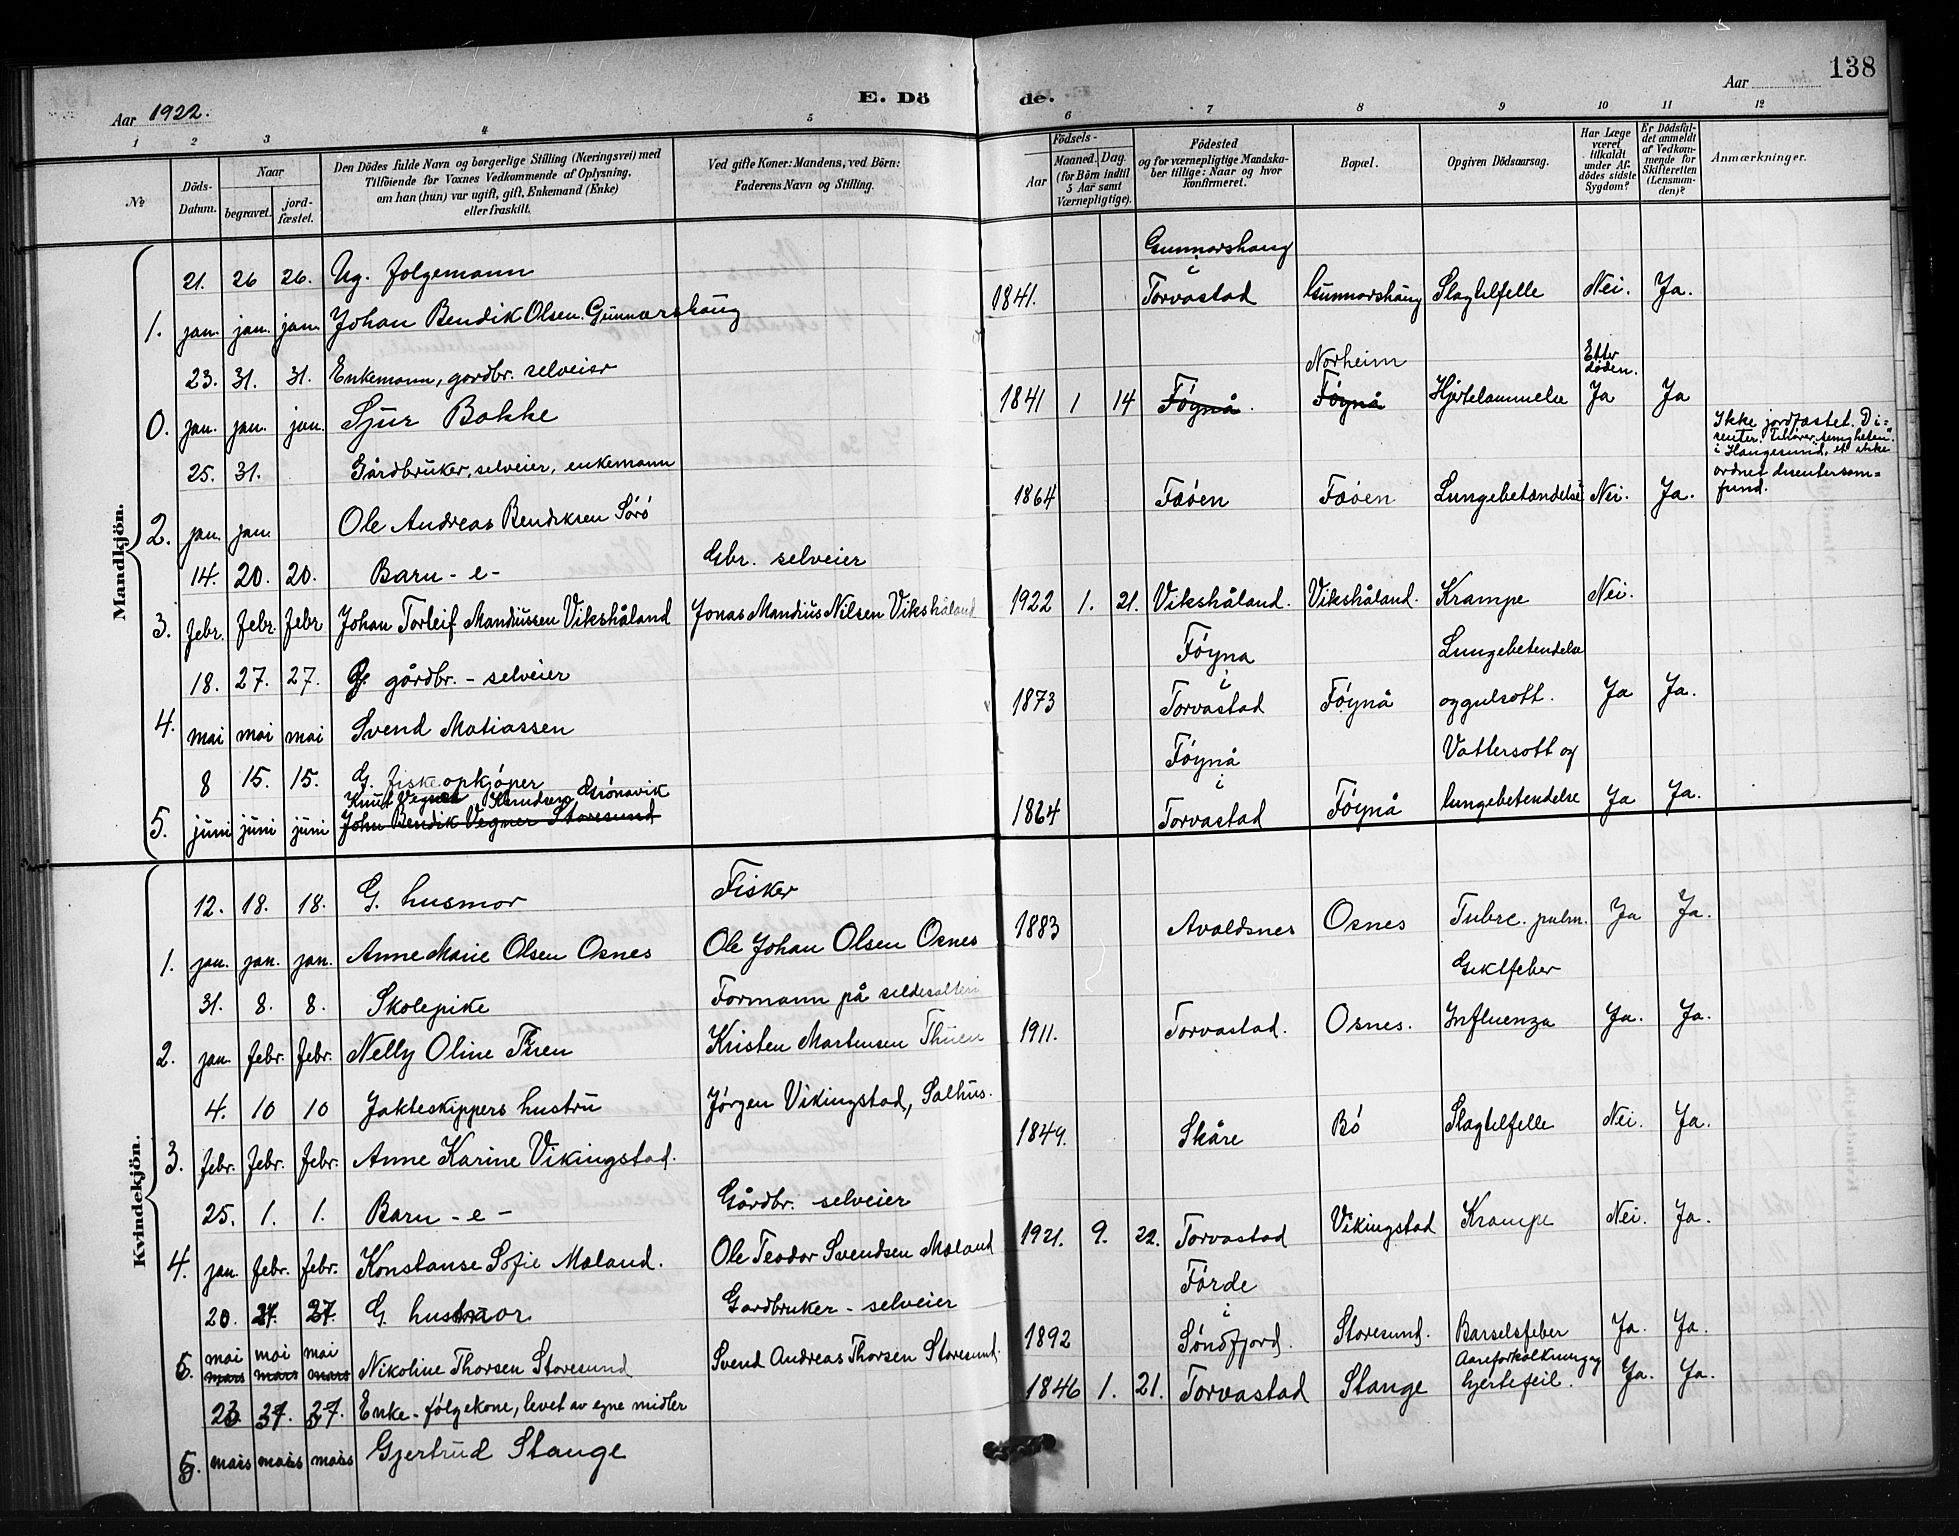 138
E. Döde.
Aar 1922.
Aar
1 2 3 4 5 6 7 8 9 10 11 12
No
Döds-Datum.
Naar
begravet.
jord-fæstet.
Den Dödes fulde Navn og borgerlige Stilling (Næringsvei) med
Tilföiende for Voxnes Vedkommende af Oplysning,
om han (hun) var ugift, gift, Enkemand (Enke)
eller fraskilt.
Ved gifte Koner: Mandens, ved Börn:
Faderens Navn og Stilling.
Födsels-
Aar
Maaned. Dag.
(for Börn indtil
5 Aar samt
Værnepligtige).
Födested
og for værnepligtige Mandska-
ber tillige: Naar og hvor
konfirmeret.
Bopæl.
Opgiven Dödsaarsag.
Har Læge
været
tilkaldt
under Af-
dödes sidste
Sygdom?
Er Dödsfal-
det anmeldt
af Vedkom-
mende for
Skifteretten
(Lensman-
den)?
Anmærkninger.
Mandkjön.
Gunnarshaug
i
21. 26 26. Ug. folgemann
1841. Torvastad Gunnarshaug Slagtilfelle Nei. Ja.
1. jan. jan. jan. Johan Bendik Olsen Gunnarshaug
Norheim Etter døden.
23. 31. 31. Enkemann, gardbr. selveier
1841 1 14 Föynå. Föynå Hjertelammelse Ja Ja
0. jan. jan. jan. Sjur Bakke
Ikke jordfæstet. Di=
senter. Tilhører "menigheten"
i Haugesund, et ikke
ordnet disentersam=
fund.
25. 31. Gårdbruker, selveier, enkemann
1864 Fæøen Fæøen Lungebetændelse Nei. Ja.
2. jan. jan. Ole Andreas Bendiksen Sörö
14. 20. 20. Barn - e - Gbr. selveier
1922 1. 21. Vikshåland. Vikshåland. Krampe Nei.
3. febr. febr. febr Johan Torleif Mandiussen Vikshåland Jonas Mandius Nilsen Vikshåland
Föyna Lungebetendelse
i
18. 27. 27. G. gårdbr. - selveier
1873 Torvastad Föynå og gulsott. Ja Ja.
4. mai mai mai Svend Matiassen
Föynå Vattersott og
i
8 15. 15. G. fiskeopkjöper
Knut Vegner Knudsen Grönavik
1864 Torvastad Föynå lungebetendelse Ja Ja.
5. juni juni juni John Bendik Vegner Storesund
Kvindekjön.
12. 18. 18. G. husmor Fisker
1883 Avaldsnes Osnes Tubrc. pulm. Ja Ja.
1. jan. jan. jan. Anne Marie Olsen Osnes Ole Johan Olsen Osnes
Giktfeber
31. 8. 8. Skolepike Formann på seldesalteri
1911. Torvastad. Osnes. Influenza Ja. Ja.
2. jan. febr. febr. Nelly Oline Thuen Kristen Martensen Thuen
4. 10 10 Jakteskippers hustru Jörgen Vikingstad, Salhus.
1849. Skåre Bö Slagtilfelle Nei. Ja.
3. febr. febr. febr. Anne Karine Vikingstad.
25. 1. 1. Barn - e - Gårdbr. selveier
1921. 9. 22. Torvastad Vikingstad Krampe Nei. Ja.
4. jan. febr. febr. Konstanse Sofie Maland. Ole Teodor Svendsen Maland
Förde
i
20. 27. 27. G. husmor Gardbruker - selveier
1892 Söndfjord. Storesund. Barselsfeber Ja. Ja.
mai mai mai
6. mars mars mars Nikoline Thorsen Storesund Svend Andreas Thorsen Storesund.
Aareforkalkning og
1846 1. 21. Torvastad Stange hjertefeil. Ja. Ja.
Enke - följekone, levet av egne midler
5. mars mars mars Gjertrud Stange